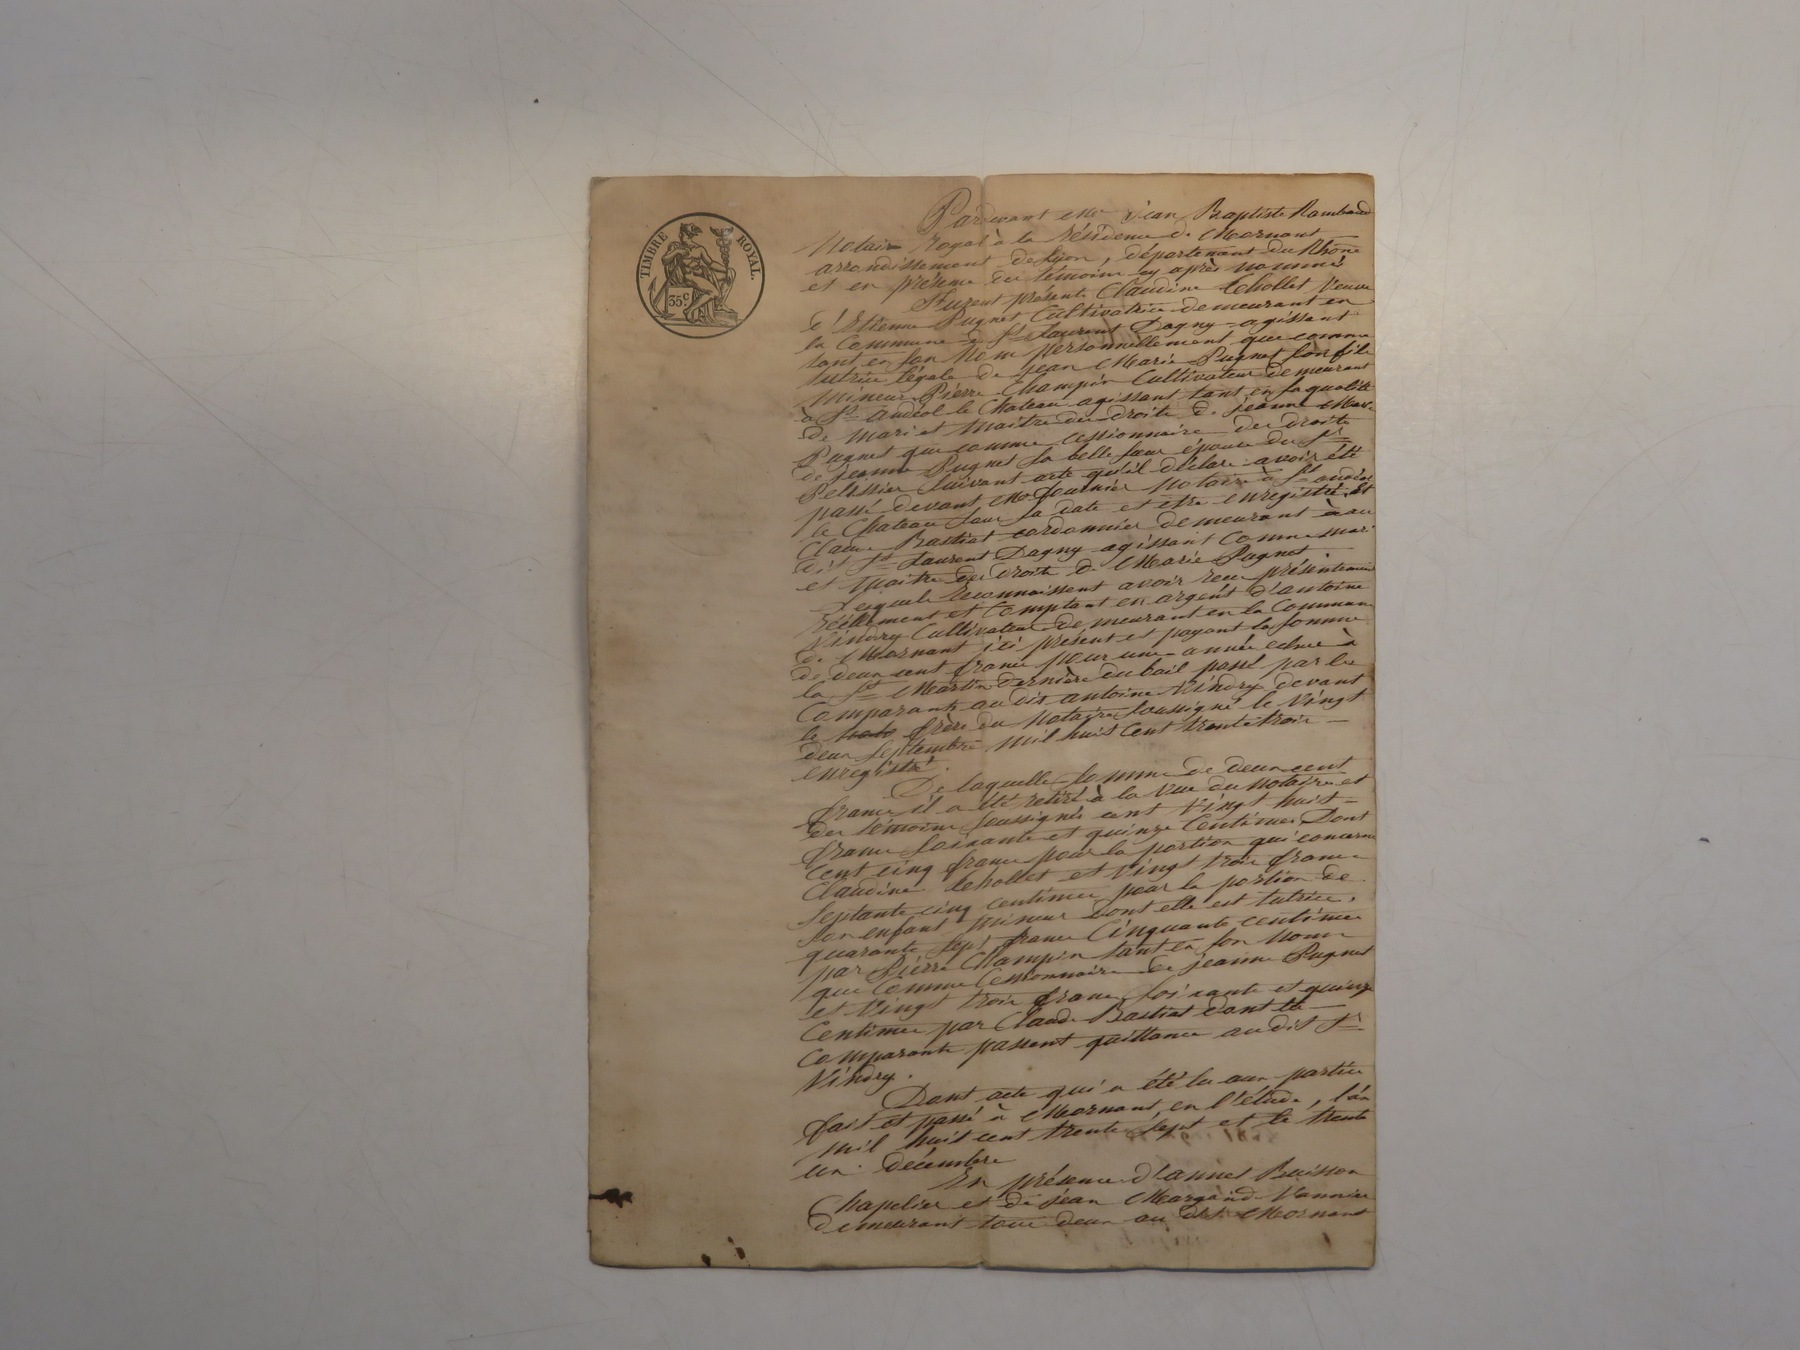 TIMBRE ROYAL.
35c
Pardevant Me Jean Baptiste Rambaud
Notaire Royal à la résidence de Mornant
arrondissement de Lyon, département du Rhône
et en présence des témoins cy après nommés
Furent présents Claudine Chollet Veuve
d'Etienne Pugnet Cultivatrice demeurant en
la Commune de St Laurent Dagny agissant
tant en son Nom personnellement que comme
tutrice légale de jean Marie Pugnet son fils
Mineur Pierre Champin Cultivateur demeurant
à St andéol le Chateau agissant tant en sa qualité
de mari et Maitre des droits de jeanne Marie
Pugnet que comme cessionnaire des droits
de jeanne Pugnet sa belle sœur épouse du Sr
Pelissier suivant acte qu'il déclare avoir été
passé devant Me Notaire à St andéol
le Chateau sous sa date et etre enregistré. Et
Claude Bastiat cordonnier demeurant à au
dit St Laurent Dagny agissant Comme mari
et Maitre des droits de Marie Pugnet.
Lesquels reconnaissent avoir reçu présentement
réellement et Comptant en argent d'antoine
Vindry Cultivateur demeurant en la Commune
de Mornant ici présent et payant la somme
de deux cent francs pour une année echue à
la St Martin dernière du bail passé par les
Comparants au dit antoine Vindry devant
le frère du Notaire soussigné le Vingt
deux septembre mil huit cent trente trois
enregistré.
De laquelle somme de deux cent
francs il a été retiré à la vue du Notaire et
des témoins soussignés cent Vingt huit
francs soixante et quinze Centimes Dont
Cent cinq francs pour la portion qui concerne
Claudine Chollet et Vingt trois francs
septante cinq centimes pour la portion de
son enfant mineur dont elle est tutrice,
quarante sept francs Cinquante centimes
par Pierre Champin tant en son Nom
que Comme Cessionnaire de jeanne Pugnet
et Vingt trois francs soixante et quinze
Centimes par Claude Bastiat dont les
comparants passent quittance au dit Sr
Vindry.
Dont acte qui a été lu aux parties
fait et passé à Mornant, en l'étude, l'an
mil huit cent trente sept et le trente
un décembre
En présence d'annet Buisson
Chapelier et de jean Margand Vannier
demeurant tous deux au dit Mornant